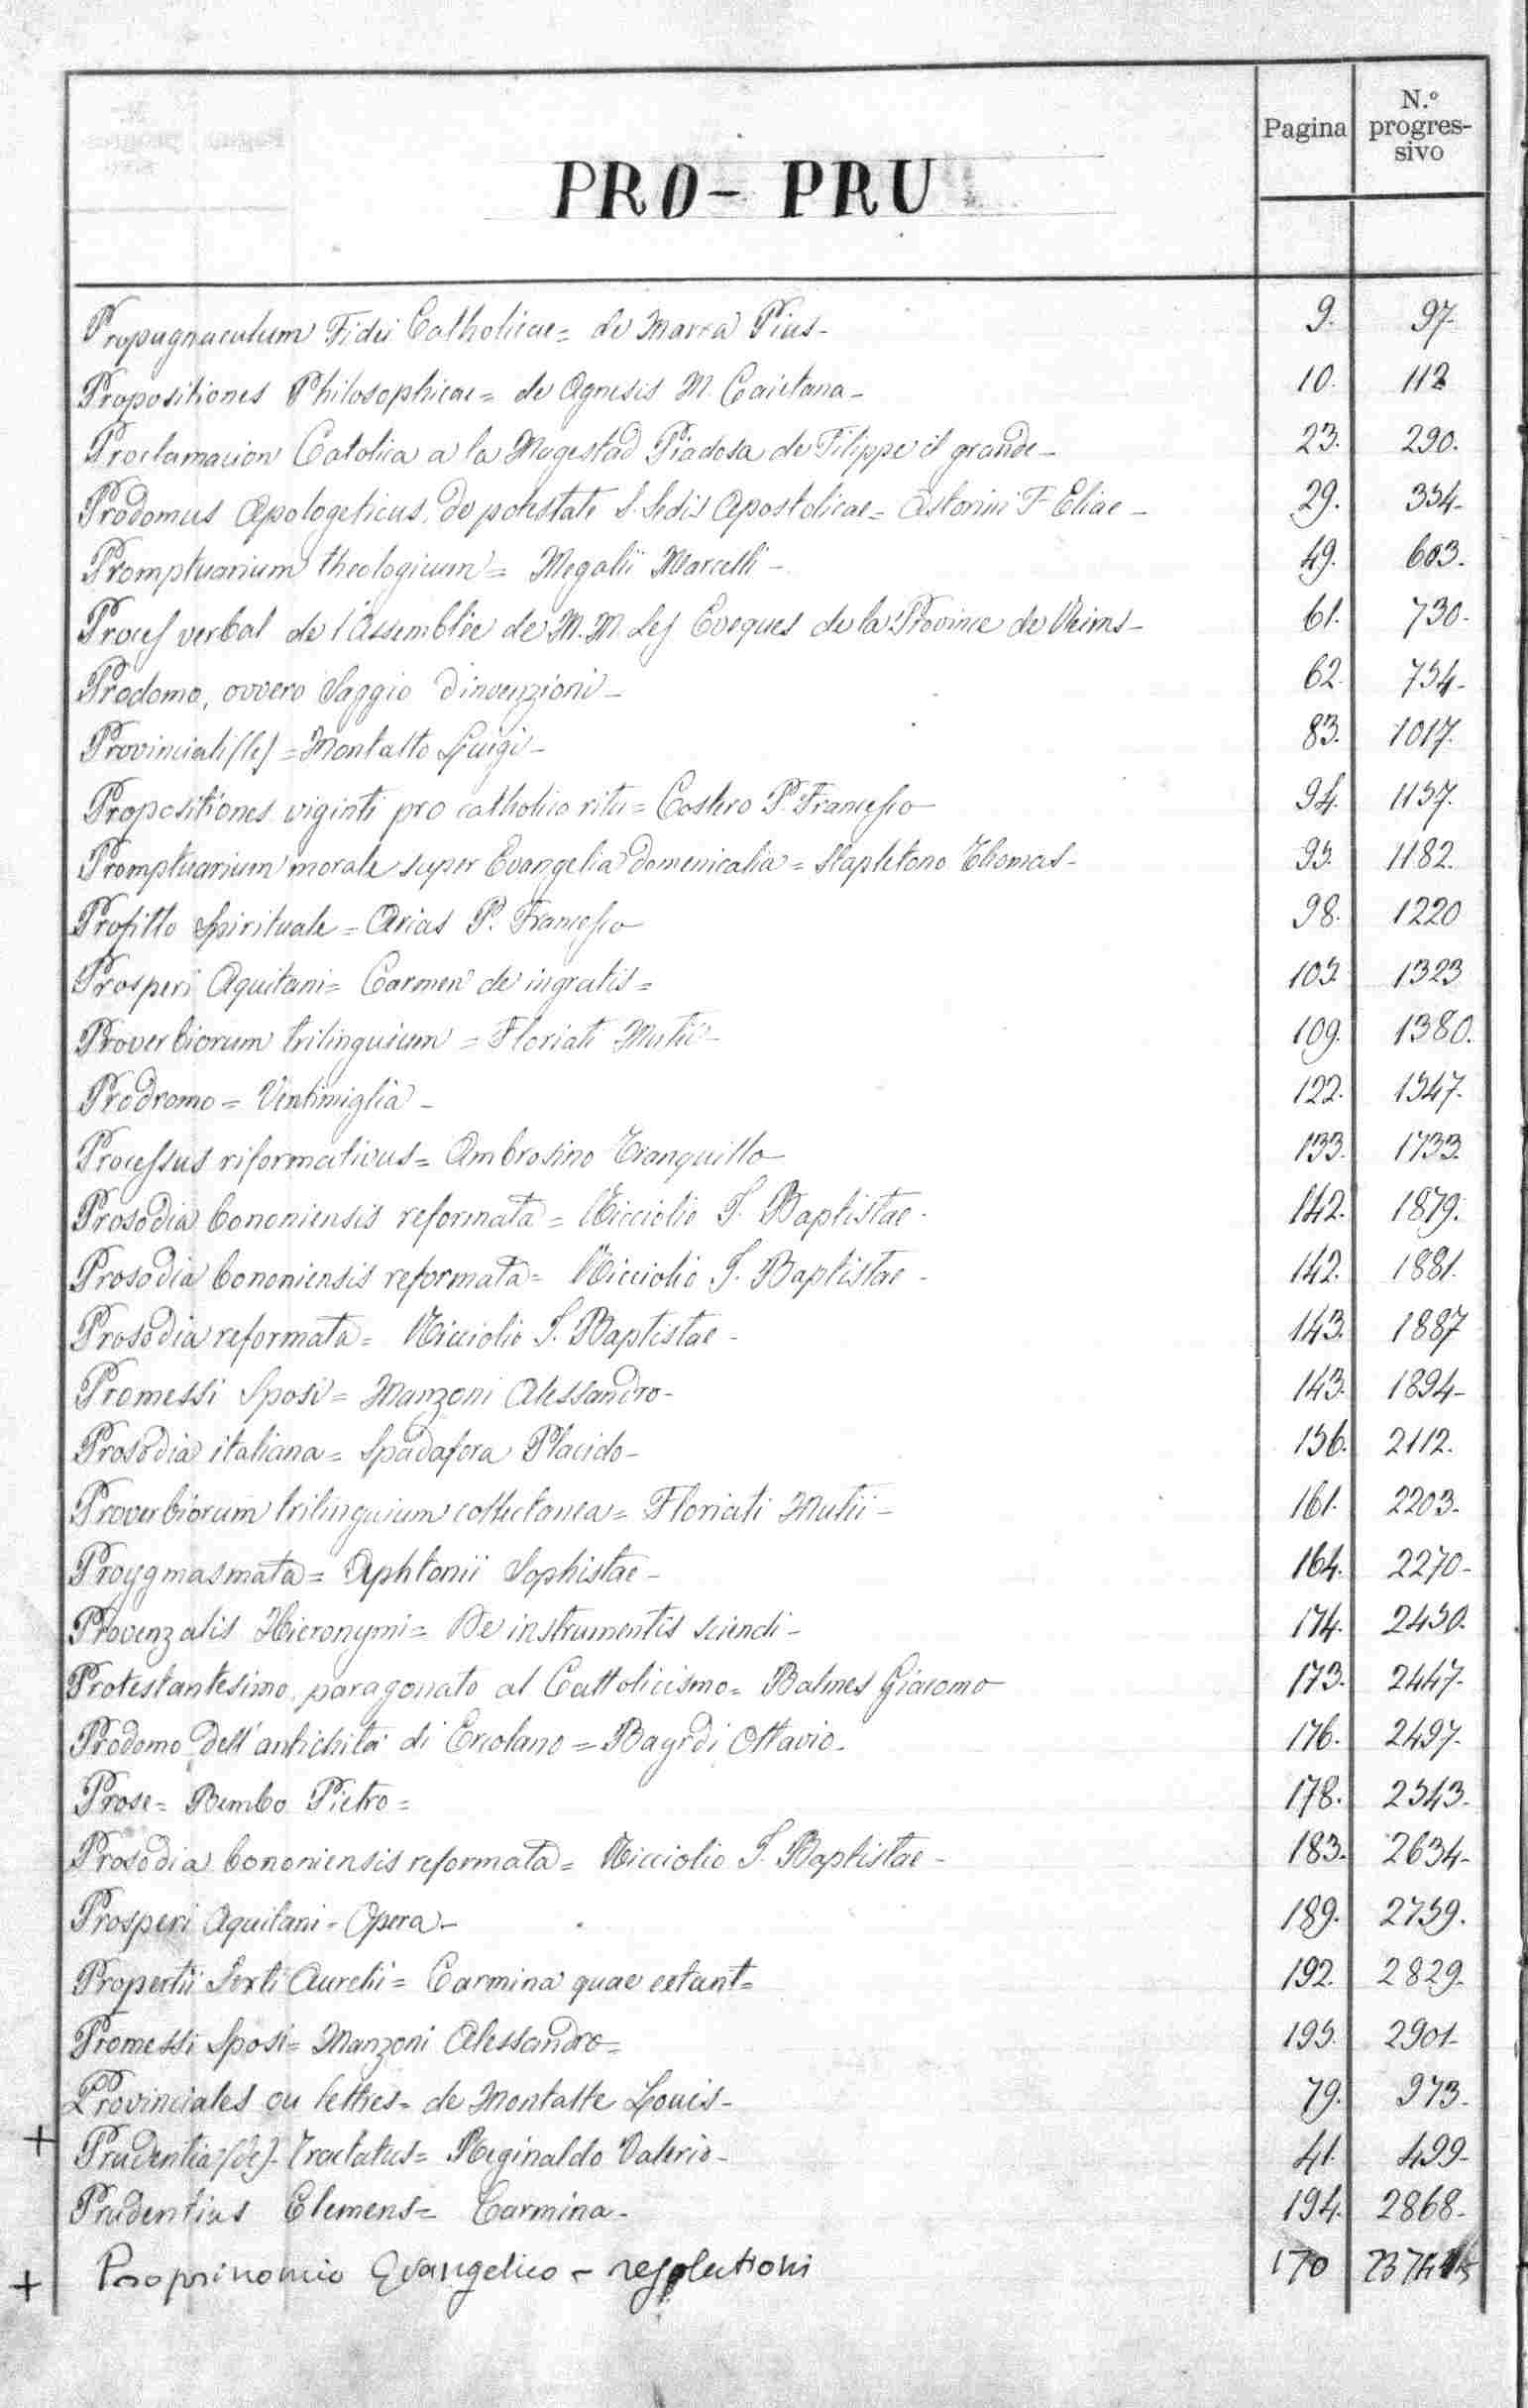 Pagina N.º progres-sivo
PRO - PRU
Propugnaculum Fidei Catholicae = de Marra Pius - 9. 97.
Propositiones Philosophicae = de Agnesis M. Caietana - 10. 112
Proclamacion Catolica a la Magestad Piadosa de Filippe il grande - 23. 290.
Prodomus Apologeticus, de potestate S. Sedis Apostolicae = Astorini F. Eliae - 29. 354.
Promptuarium theologicum = Megalii Marcelli - 49. 603.
Proces verbal de l'Assemblée de M.M. Les Eveques de la Province de Reims - 61. 730.
Prodomo, ovvero Saggio d'invenzioni - 62. 734.
Provinciali (le) = Montalto Luigi - 83. 1017.
Propositiones viginti pro catholico ritu = Costero P. Francesco 94. 1157.
Promptuarium morale super Evangelia domenicalia = Stapletono Thomas - 95. 1182.
Profitto Spirituale = Arias P. Francesco 98. 1220
Prosperi Aquitani = Carmen de ingratis = 105. 1323
Proverbiorum trilinguium = Floriati Mutii - 109. 1380.
Prodromo = Ventimiglia - 122. 1547.
Processus riformativus = Ambrosino Tranquillo 133. 1733.
Prosodia bononiensis reformata = Ricciolio J. Baptistae - 142. 1879.
Prosodia bononiensis reformata = Ricciolio J. Baptistae - 142. 1881.
Prosodia reformata = Ricciolio J. Baptistae - 143. 1887
Promessi Sposi = Manzoni Alessandro - 143. 1894
Prosodia italiana = Spadafora Placido - 156. 2112.
Proverbiorum trilinguium collectanea = Floriati Mutii - 161. 2203.
Proygmasmata = Aphtonii Sophistae - 164. 2270.
Provenzalis Hieronymi = De instrumentis sciendi - 174. 2450.
Protestantesimo paragonato al Cattolicismo = Balmes Giacomo 173. 2447.
Prodomo dell'antichità di Ercolano = Bayrdi Ottavio - 176. 2497.
Prose = Bembo Pietro = 178. 2543.
Prosodia bononiensis reformata = Ricciolio J. Baptistae - 183. 2634.
Prosperi Aquitani - Opera - 189. 2759.
Propertii Sexti Aurelii = Carmina quae extant = 192. 2829.
Promessi Sposi = Manzoni Alessandro = 195. 2901.
Provinciales ou lettres - de Montalte Louis - 79. 973.
+ Prudentia (de) - Tractatus = Reginaldo Valerio - 41. 499.
Prudentius Clemens = Carmina - 194. 2868.
+ Proprinomio Evangelico - resolutioni 170